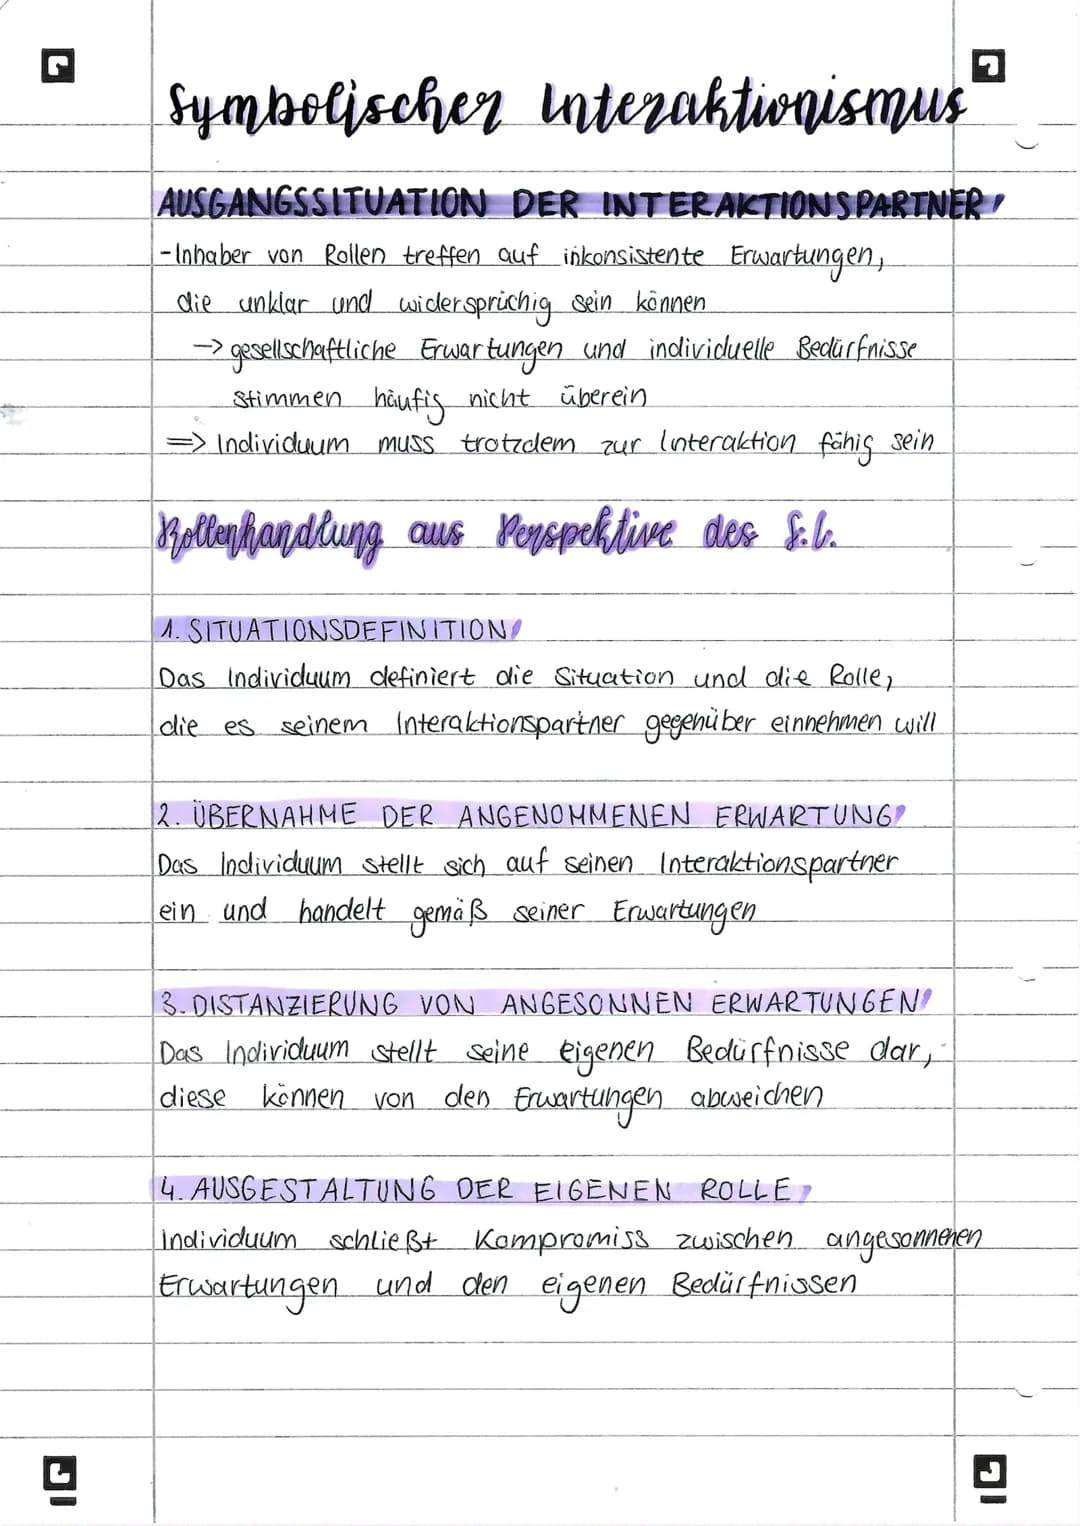 Symbolischer Interaktionismus
AUSGANGSSITUATION DER INTERAKTIONSPARTNER
-Inhaber von Rollen treffen auf inkonsistente Erwartungen,
die unklar und widersprüchig sein können
-> gesellschaftliche Erwartungen und individuelle Bedürfnisse
stimmen häufig nicht überein
=> Individuum muss trotzdem zur Interaktion fähig sein
Rollenhandlung aus Perspektive des S.I.
1. SITUATIONSDEFINITION
Das Individuum definiert die Situation und die Rolle,
die es seinem Interaktionspartner gegenüber einnehmen will
2. ÜBERNAHME DER ANGENOMMENEN ERWARTUNG
Das Individuum stellt sich auf seinen Interaktionspartner
ein und handelt gemäß seiner Erwartungen
3. DISTANZIERUNG VON ANGESONNEN ERWARTUNGEN
Das Individuum stellt seine eigenen Bedürfnisse dar,
diese können von den Erwartungen abweichen
4. AUSGESTALTUNG DER EIGENEN ROLLE
Individuum schließt Kompromiss zwischen angesonnenen
Erwartungen und den eigenen Bedürfnissen